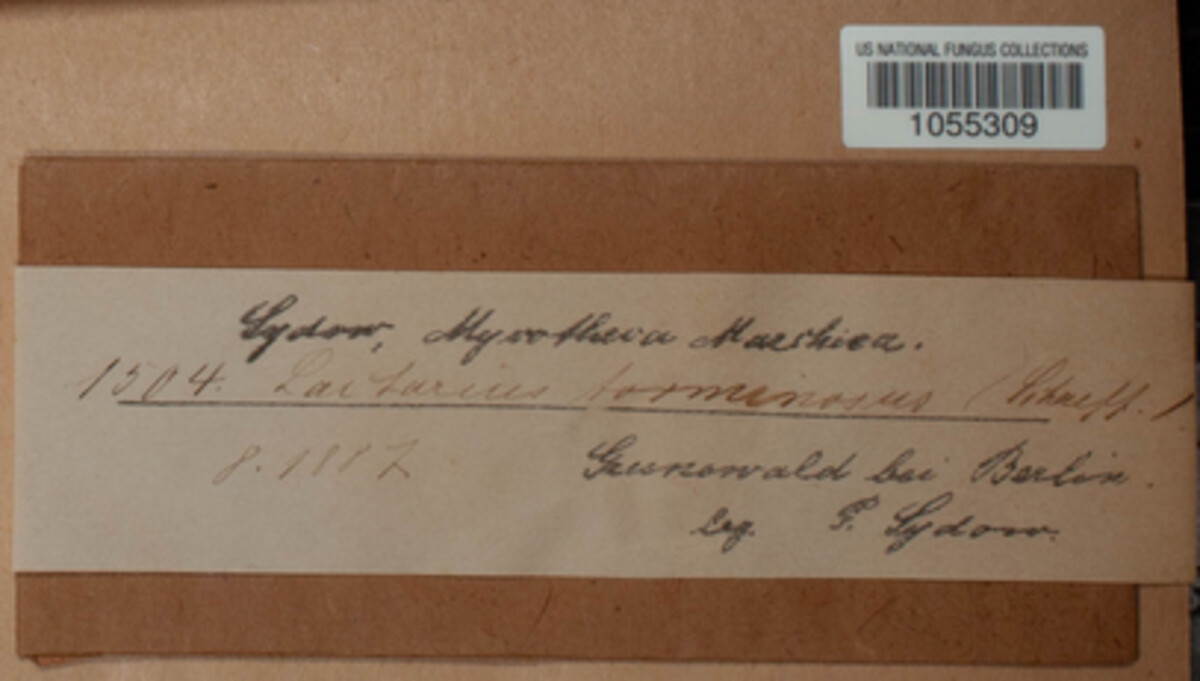 US NATIONAL FUNGUS COLLECTIONS
1055309
Sydow, Mycotheca Marchica.
1504. Lactarius torminosus (Schaeff.)
8. 1887
Grunewald bei Berlin.
Leg. P. Sydow.